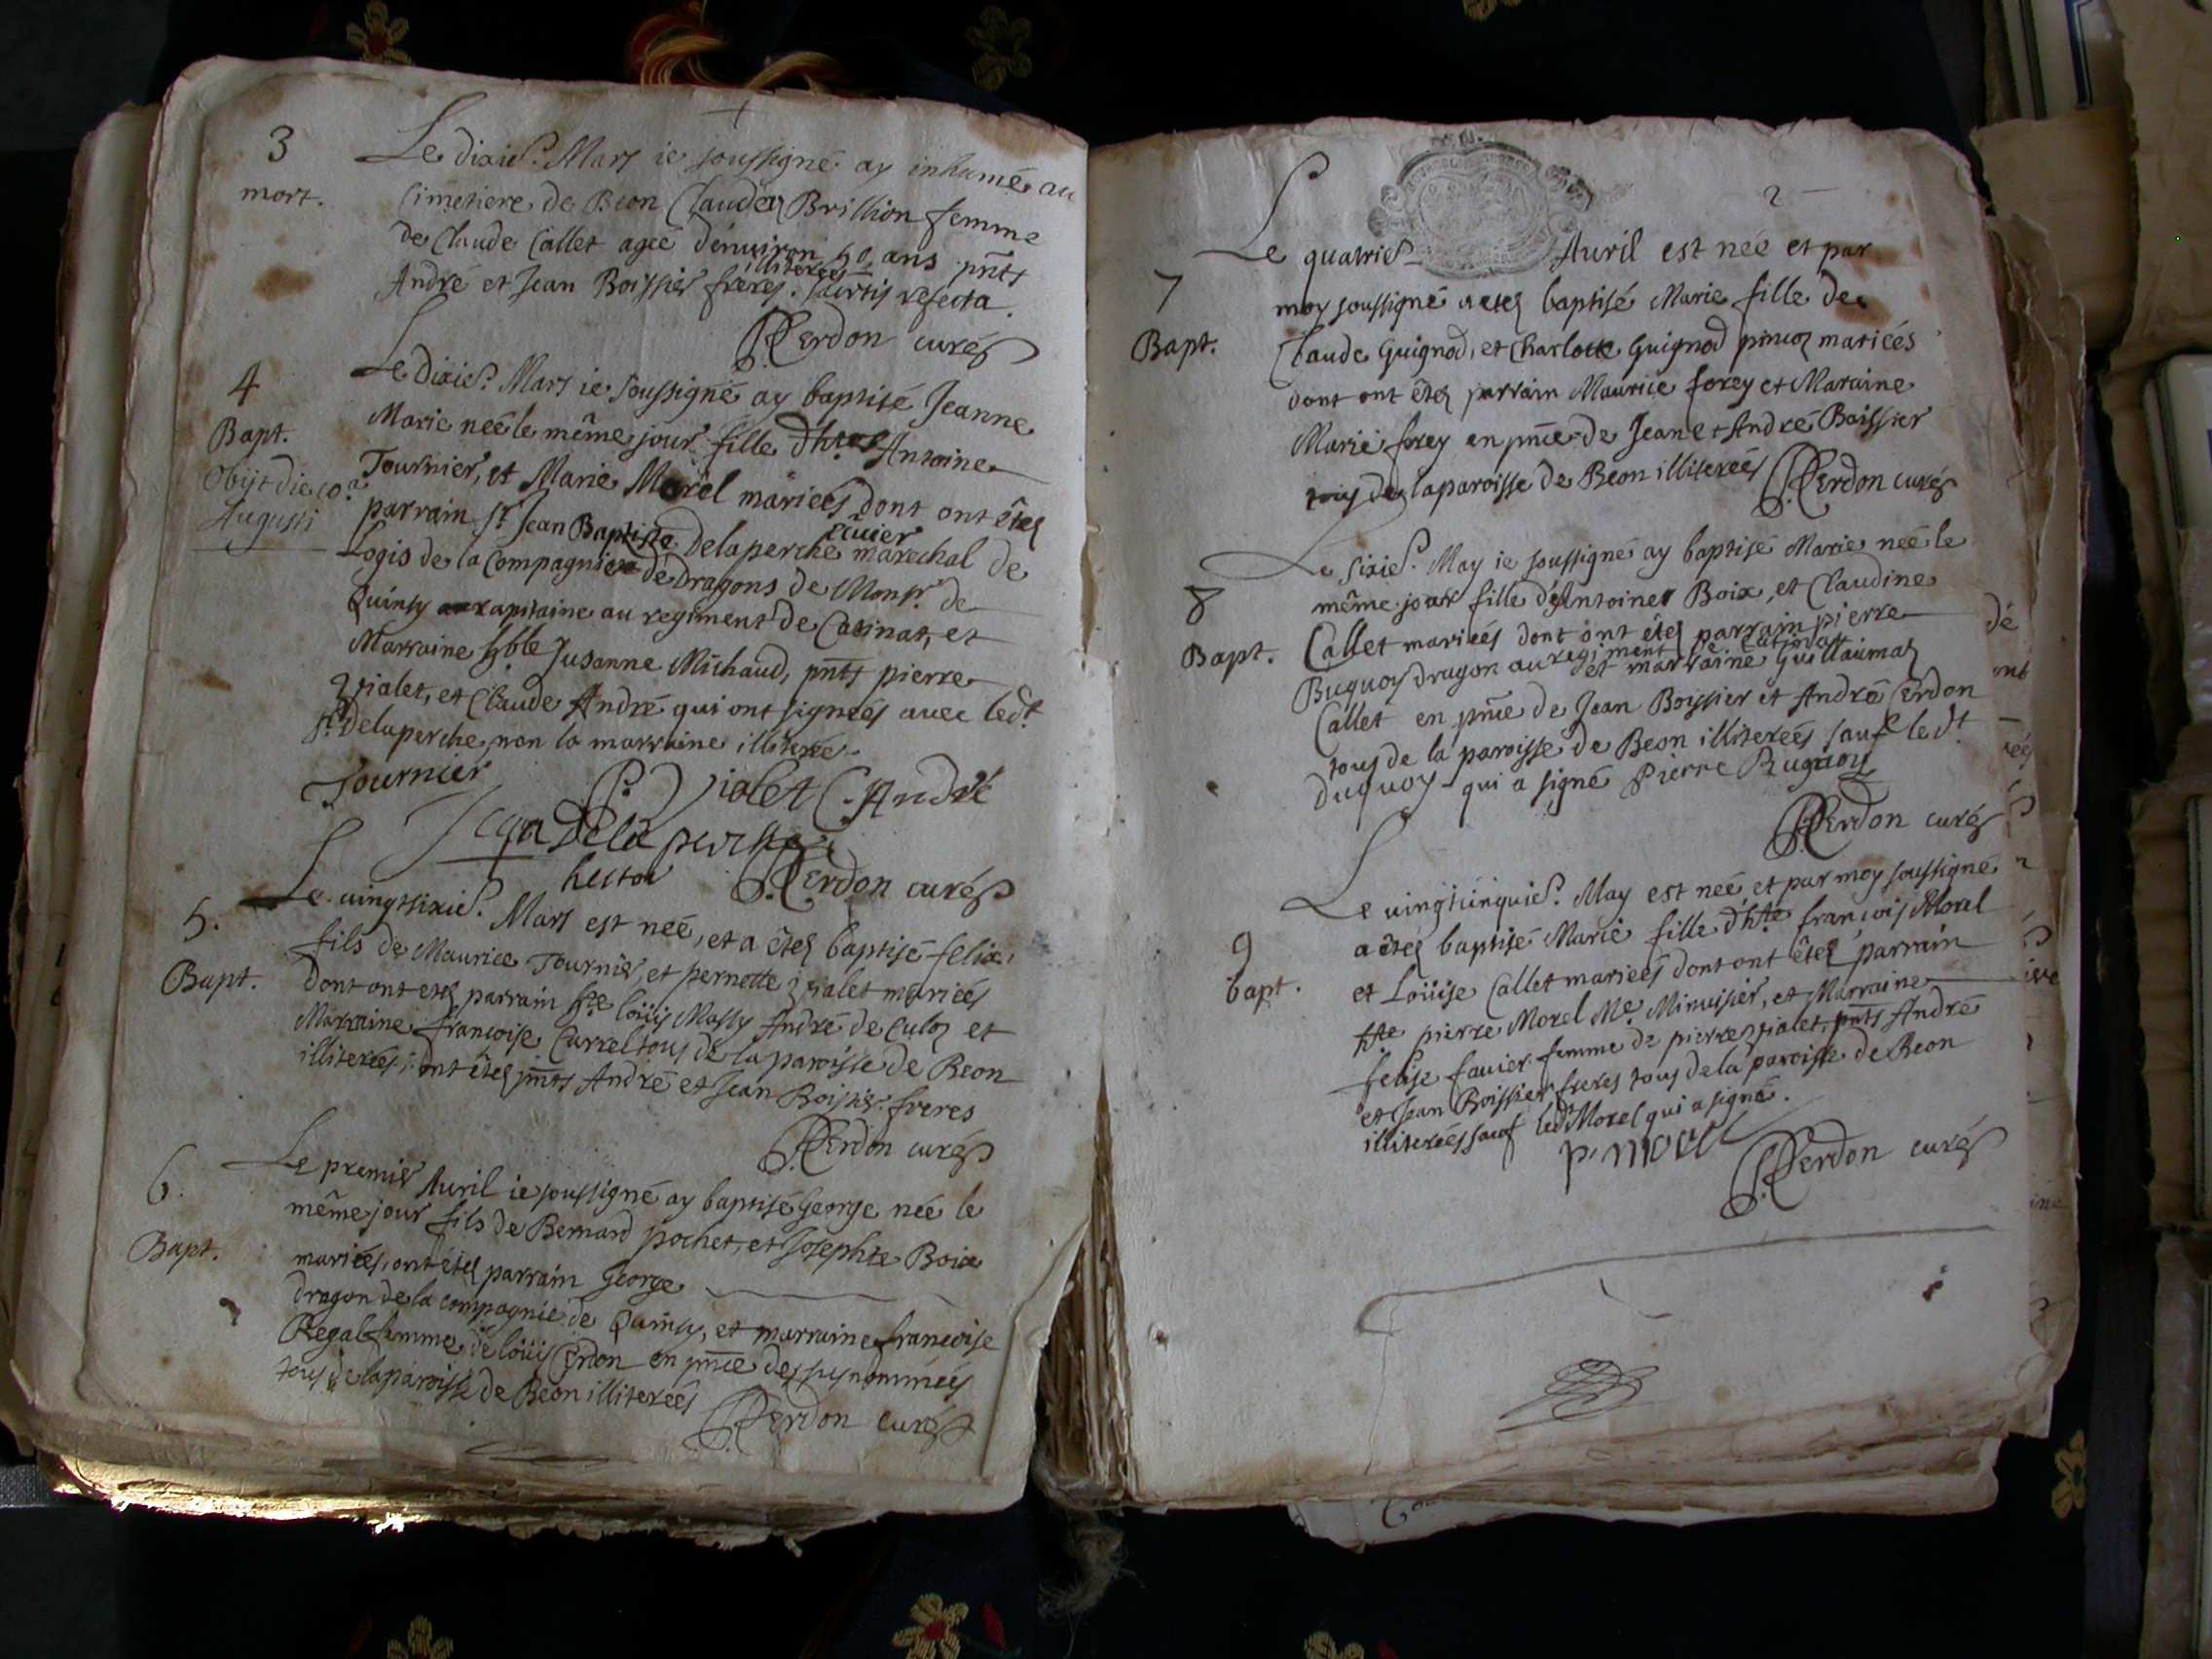 3
mort.
Le dixie. Mars ie soussigné ay inhumé au
Cimetiere de Beon Claudα Brillion femme
de Claude Callet ageé d'enuiron 50 ans pnts
illitereés
André et Jean Boissier freres. sacrtis refecta.
P. Cerdon curé
4
Bapt.
Obijt die 10a
Augusti
Le dixie. Mars ie soussigné ay baptisé Jeanne
Marie neé le même jour fille d'h. Antoine
Tournier, et Marie Morel marieés dont ont êté
parrain sr. Jean Baptiste Delaperche marechal de
Logis de la Compagnie de Dragons de Monsr. de
Quinsy capitaine au regiment de Catinat, et
Marraine hble Susanne Michaud, pnts pierre
Vialet, et Claude André qui ont signeés avec ledt.
sr. Delaperche non la marraine illitereé.
Tournier
P. Vialet C. André
Jean Dela perche
hector P. Cerdon curé
5.
Bapt.
Le vingtsixie. Mars est neé, et a êté baptisé felix,
fils de Maurice Tournier, et pernette Vialet marieés
dont ont eté parrain hte loüis Massy André de Culoz et
Marraine françoise Carrel tous de la paroisse de Beon
illitereés; ont êté pnts André et Jean Boissier freres
P. Cerdon curé
6.
Bapt.
Le premier Auril ie soussigné ay baptisé George neé le
même jour fils de Bernard pochet, et Josephte Boix
marieés, ont été parrain George
dragon de la compagnie de Quinsy, et marraine françoise
Regal femme de loüis Cerdon en pnce des susnommeés
tous de la paroisse de Beon illitereés
P. Cerdon curé
2
7
Bapt.
Le quatrie. Auril est neé et par
moy soussigné a eté baptisé Marie fille de
Claude Guignod, et Charlotte Guignod marieés
dont ont êté parrain Maurice forey et Maraine
Marie forey en pnce de Jean et André Boissier
tous de la paroisse de Beon illitereés P. Cerdon curé
8
Bapt.
Le sixie. May ie soussigné ay baptisé Marie neé le
même jour fille d'Antoine Boix, et Claudine
Callet marieés dont ont êté parrain pierre
Buquoy dragon au regiment de Catinat et marraine Guillauma
Callet en pnce de Jean Boissier et André Cerdon
tous de la paroisse de Beon illitereés sauf le dt
Duquoy qui a signé Pierre Buquoy
P. Cerdon curé
9
bapt.
Le vingtcinquie. May est neé et par moy soussigné
a êté baptisé Marie fille d'hte françois Morel
et Loüise Callet marieés dont ont êté parrain
hte pierre Morel Me. Minuisier, et Marraine
felise fauier femme de pierre Vialet, pnts André
et Jean Boissier freres tous de la paroisse de Beon
illitereés sauf ledt Morel qui a signé.
p. morel
P. Cerdon curé